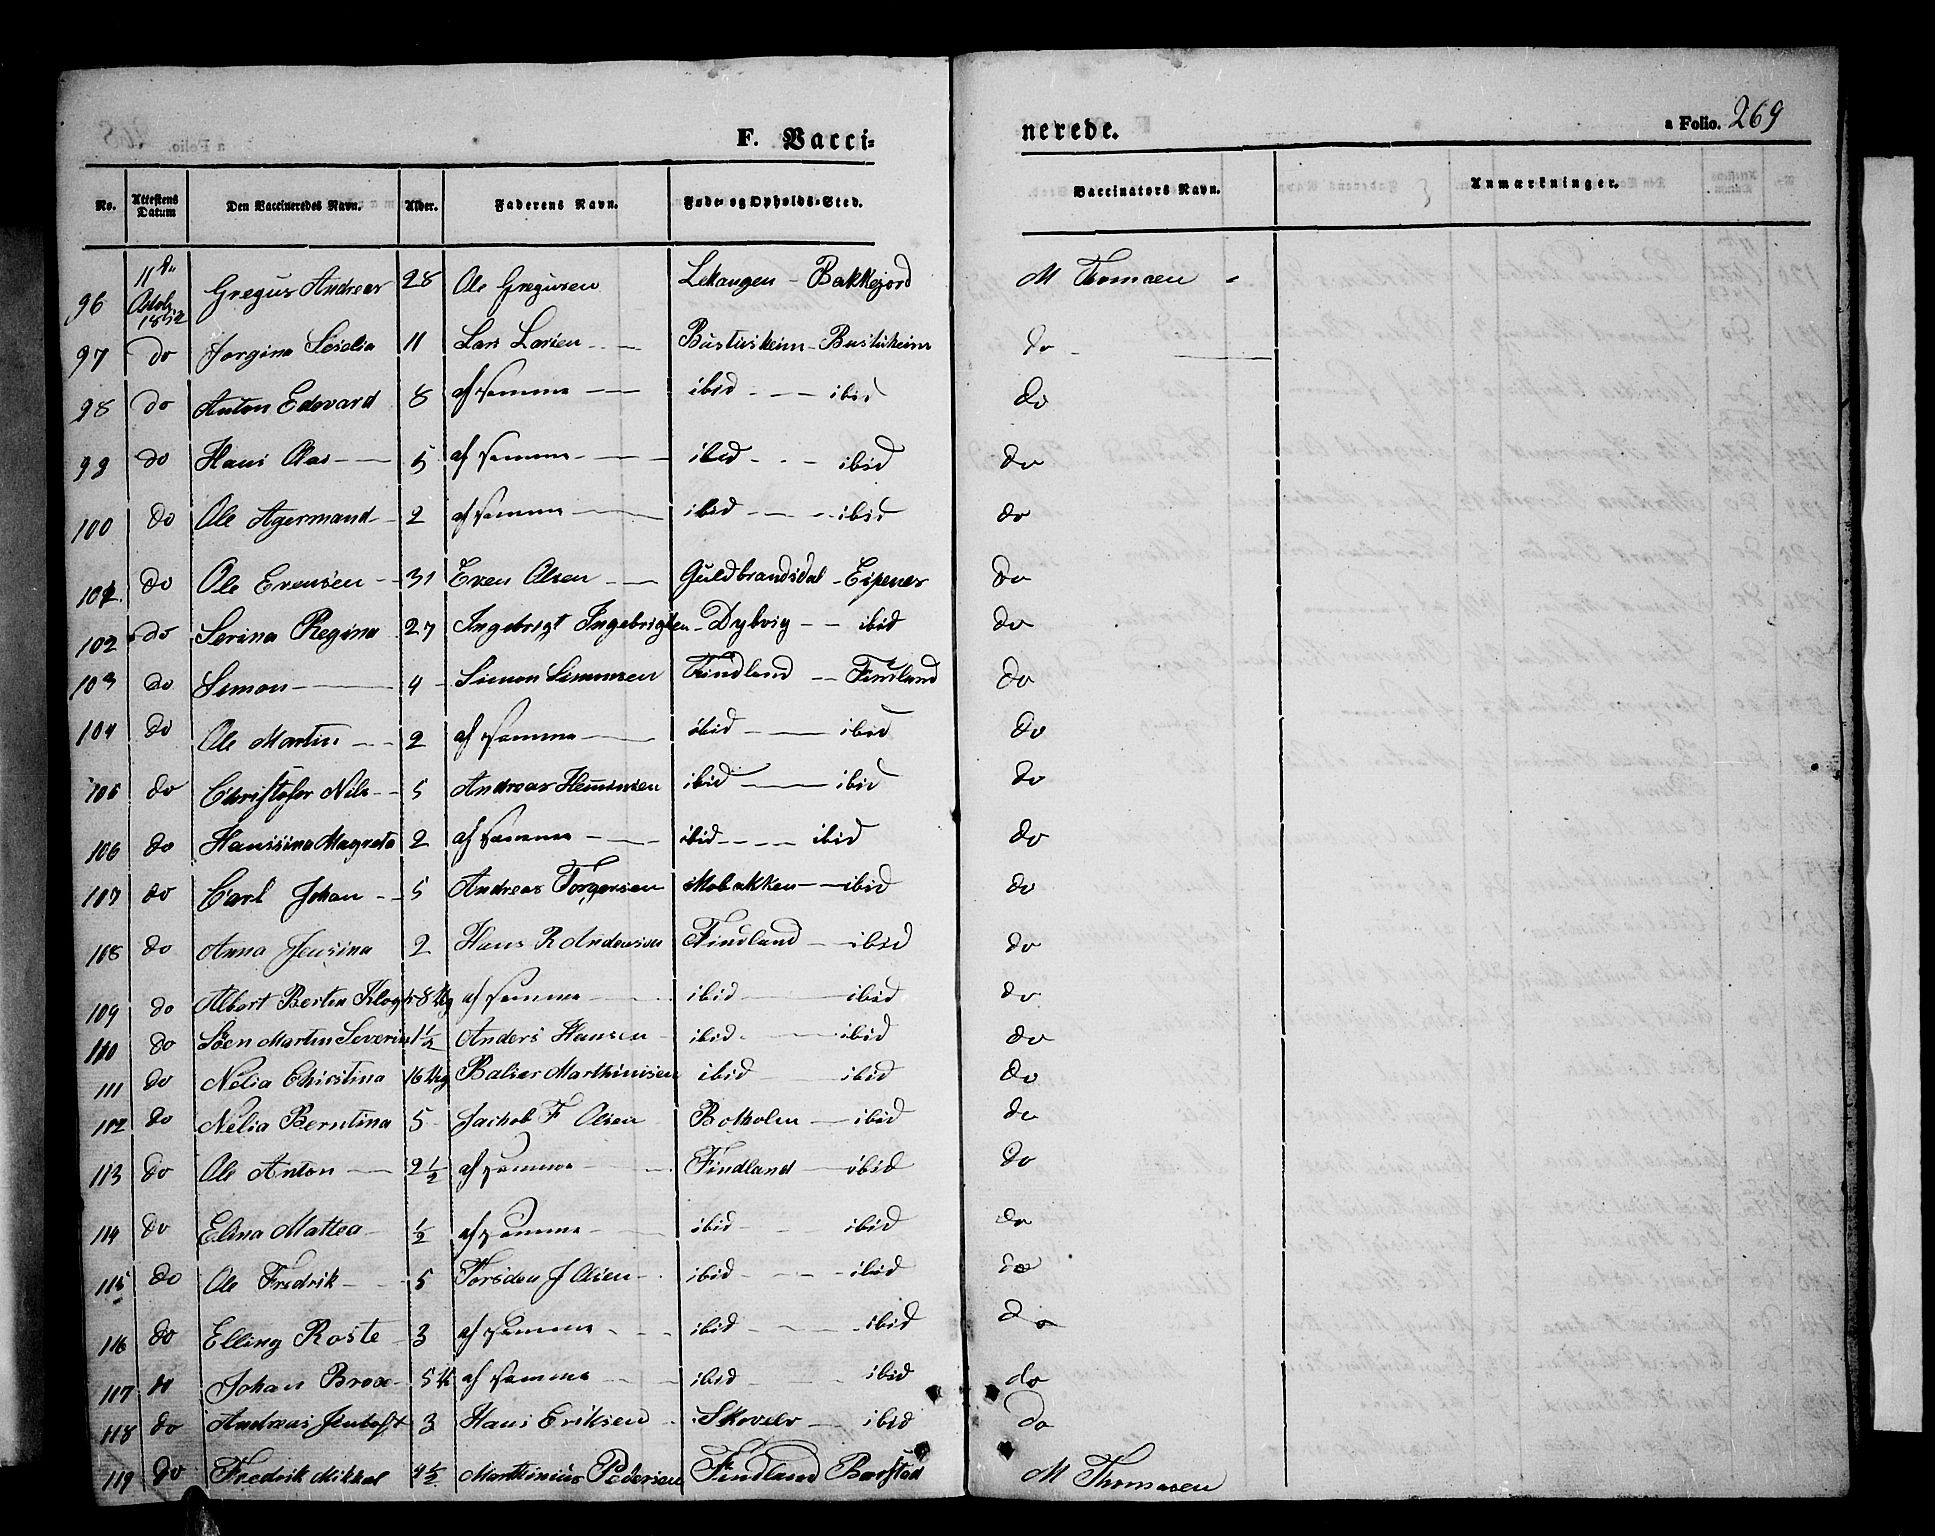 F. Vacci=
nerede.
a Folio. 269
No. Attestens Datum Den Vaccineredes Navn. Alder. Faderens Navn. Føde- og Opholds-Sted. Vaccinators Navn. Anmærkninger.
96 11te Octob. 1852 Gregus Andreas 28 Ole Gregusen Lekangen - Bakkejord M Thomsen
97 do Jorgina Seselia 11 Lars Larsen Bustusheim - Bustuheim do
98 do Anton Edevard 8 af samme ibid ibid do
99 do Hans Olai 5 af samme ibid ibid do
100 do Ole Agermand 2 af samme ibid ibid do
101 do Ole Evensen 31 Even Olsen Guldbrandsdal - Eipenes do
102 do Serina Regina 27 Ingebrigt Ingebrigtsen Dybvig ibid do
103 do Simon 4 Simon Simonsen Findland Findland do
104 do Ole Martin 2 af samme ibid ibid do
105 do Christofer Nils 5 Andreas Hemmisen ibid ibid do
106 do Hanssina Magreta 2 af samme ibid ibid do
107 do Carl Johan 5 Andreas Torgersen Mobakken ibid do
108 do Anna Jensina 2 Hans R Andersen Findland ibid do
109 do Albert Bertin 8 Ug af samme ibid ibid do
110 do Søen Martin Severin 1½ Anders Hansen ibid ibid do
111 do Nelia Christina 16 Ug Balser Marthinisen ibid ibid do
112 do Nelia Berntina 5 Jachob F Olsen Botholm ibid do
113 do Ole Anton 2½ af samme Findland ibid do
114 do Elina Mattea ½ af samme ibid ibid do
115 do Ole Fredrik 5 Torsden J Olsen ibid ibid do
116 do Elling Roste 3 af samme ibid ibid do
117 do Johan Brox 5 U af samme ibid ibid do
118 do Andreas Jentoft 3 Hans Eriksen Skovelv ibid do
119 do Fredrik Mikkal 4½ Marthinius Pedersen Findland Barstad M Thomasen